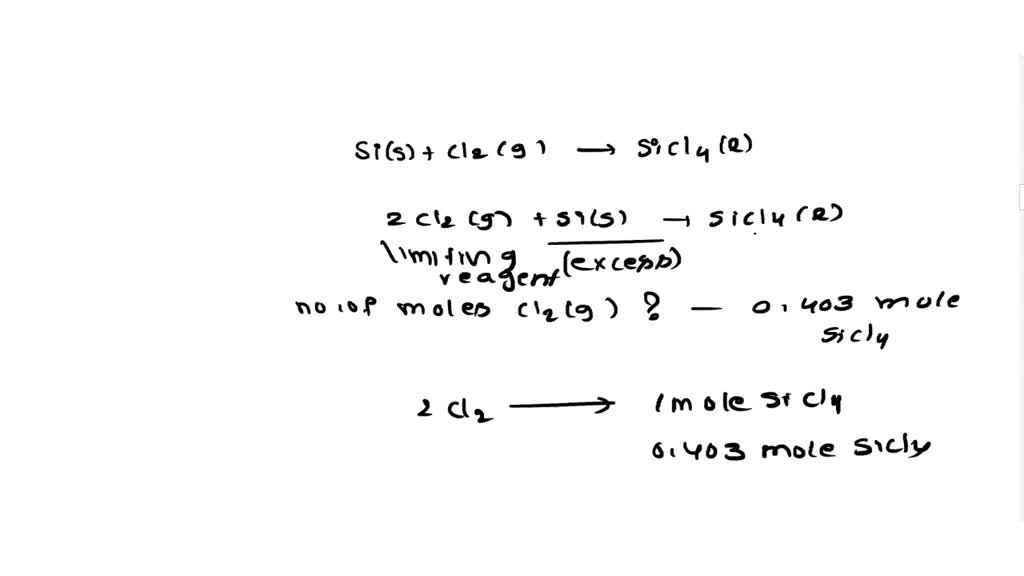 Si(s) + Cl2 (g) → SiCl4 (l)
2 Cl2 (g) + Si(s) → SiCl4 (l)
limiting (excess)
reagent
no. of moles Cl2 (g) ? — 0.403 mole
SiCl4
2 Cl2 → 1 mole SiCl4
0.403 mole SiCl4